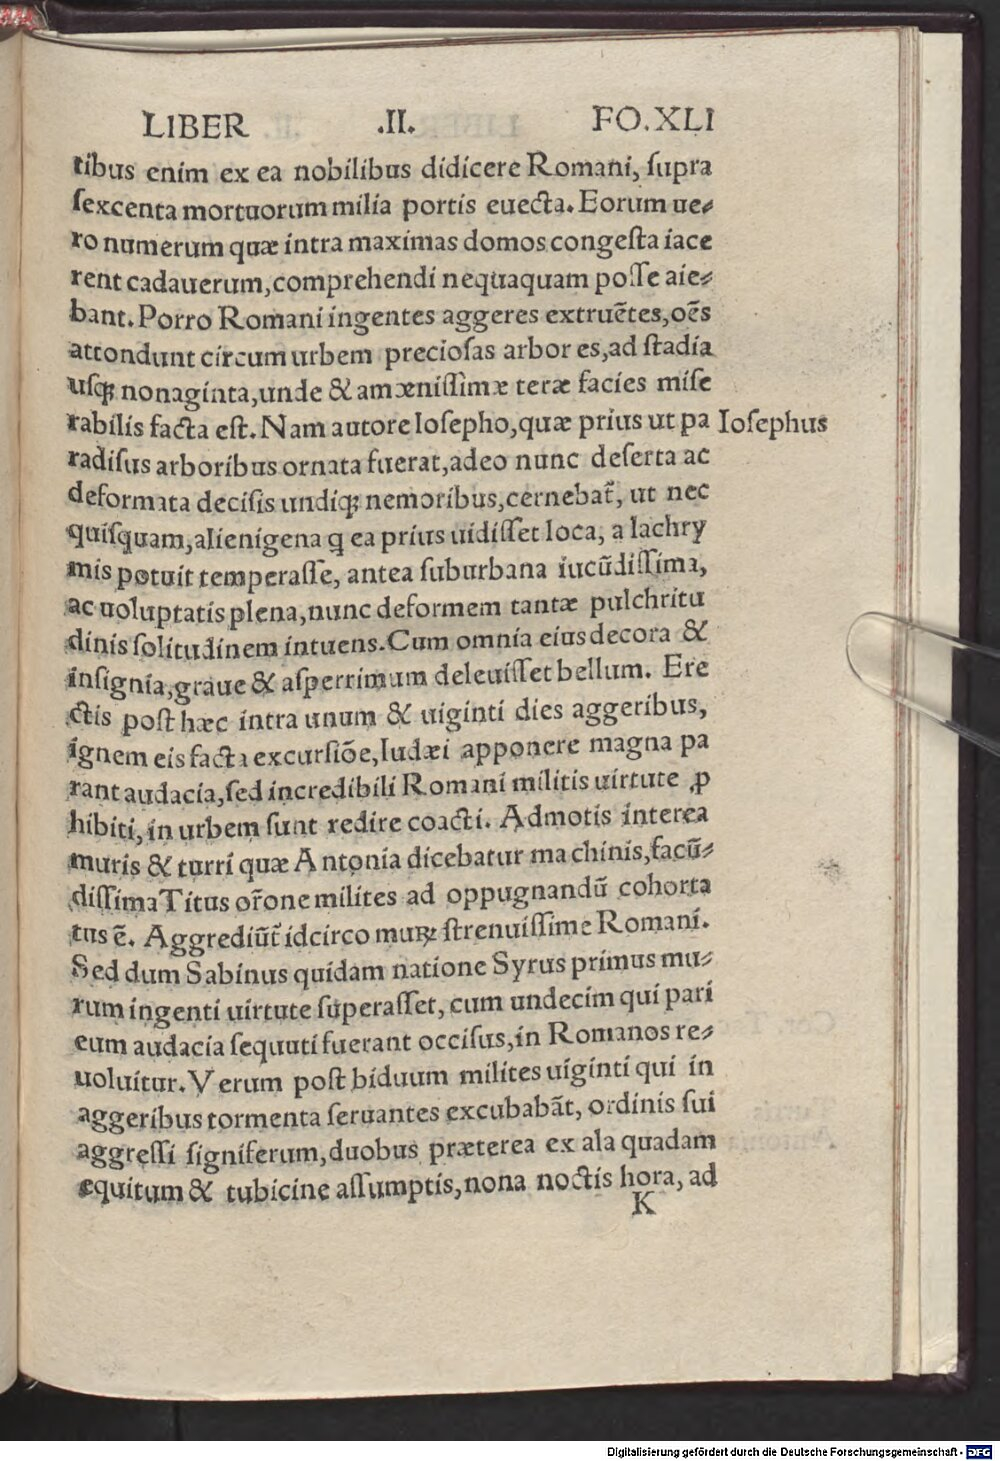 LIBER .II. FO.XLI
tibus enim ex ea nobilibus didicere Romani, ſupra
ſexcenta mortuorum milia portis euecta. Eorum ue⸗
ro numerum quæ intra maximas domos congeſta iace
rent cadauerum, comprehendi nequaquam poſſe aie⸗
bant. Porro Romani ingentes aggeres extruẽtes, oẽs
attondunt circum urbem precioſas arbor es, ad ſtadia
uſqꝫ nonaginta, unde & amœniſſimæ teræ facies miſe
rabilis facta eſt. Nam autore Ioſepho, quæ prius ut pa Ioſephus
radiſus arboribus ornata fuerat, adeo nunc deſerta ac
deformata deciſis undiqꝫ nemoribus, cernebat᷑, ut nec
quiſquam, alienigena q ea prius uidiſſet loca, a lachry
mis potuit temperaſſe, antea ſuburbana iucũdiſſima,
ac uoluptatis plena, nunc deformem tantæ pulchritu
dinis ſolitudinem intuens. Cum omnia eius decora &
inſignia, graue & aſperrimum deleuiſſet bellum. Ere
ctis poſt hæc intra unum & uiginti dies aggeribus,
ignem eis facta excurſiõe, Iudæi apponere magna pa
rant audacia, ſed incredibili Romani militis uirtute ꝓ
hibiti, in urbem ſunt redire coacti. Admotis interea
muris & turri quæ Antonia dicebatur machinis, facũ⸗
diſſima Titus or̃one milites ad oppugnandũ cohorta
tus ẽ. Aggrediũt᷑ idcirco muꝝ ſtrenuiſſime Romani.
Sed dum Sabinus quidam natione Syrus primus mu⸗
rum ingenti uirtute ſuperaſſet, cum undecim qui pari
eum audacia ſequuti fuerant occiſus, in Romanos re⸗
uoluitur. Verum poſt biduum milites uiginti qui in
aggeribus tormenta ſeruantes excubabãt, ordinis ſui
aggreſſi ſigniferum, duobus præterea ex ala quadam
equitum & tubicine aſſumptis, nona noctis hora, ad
K
Digitalisierung gefördert durch die Deutsche Forschungsgemeinschaft - DFG